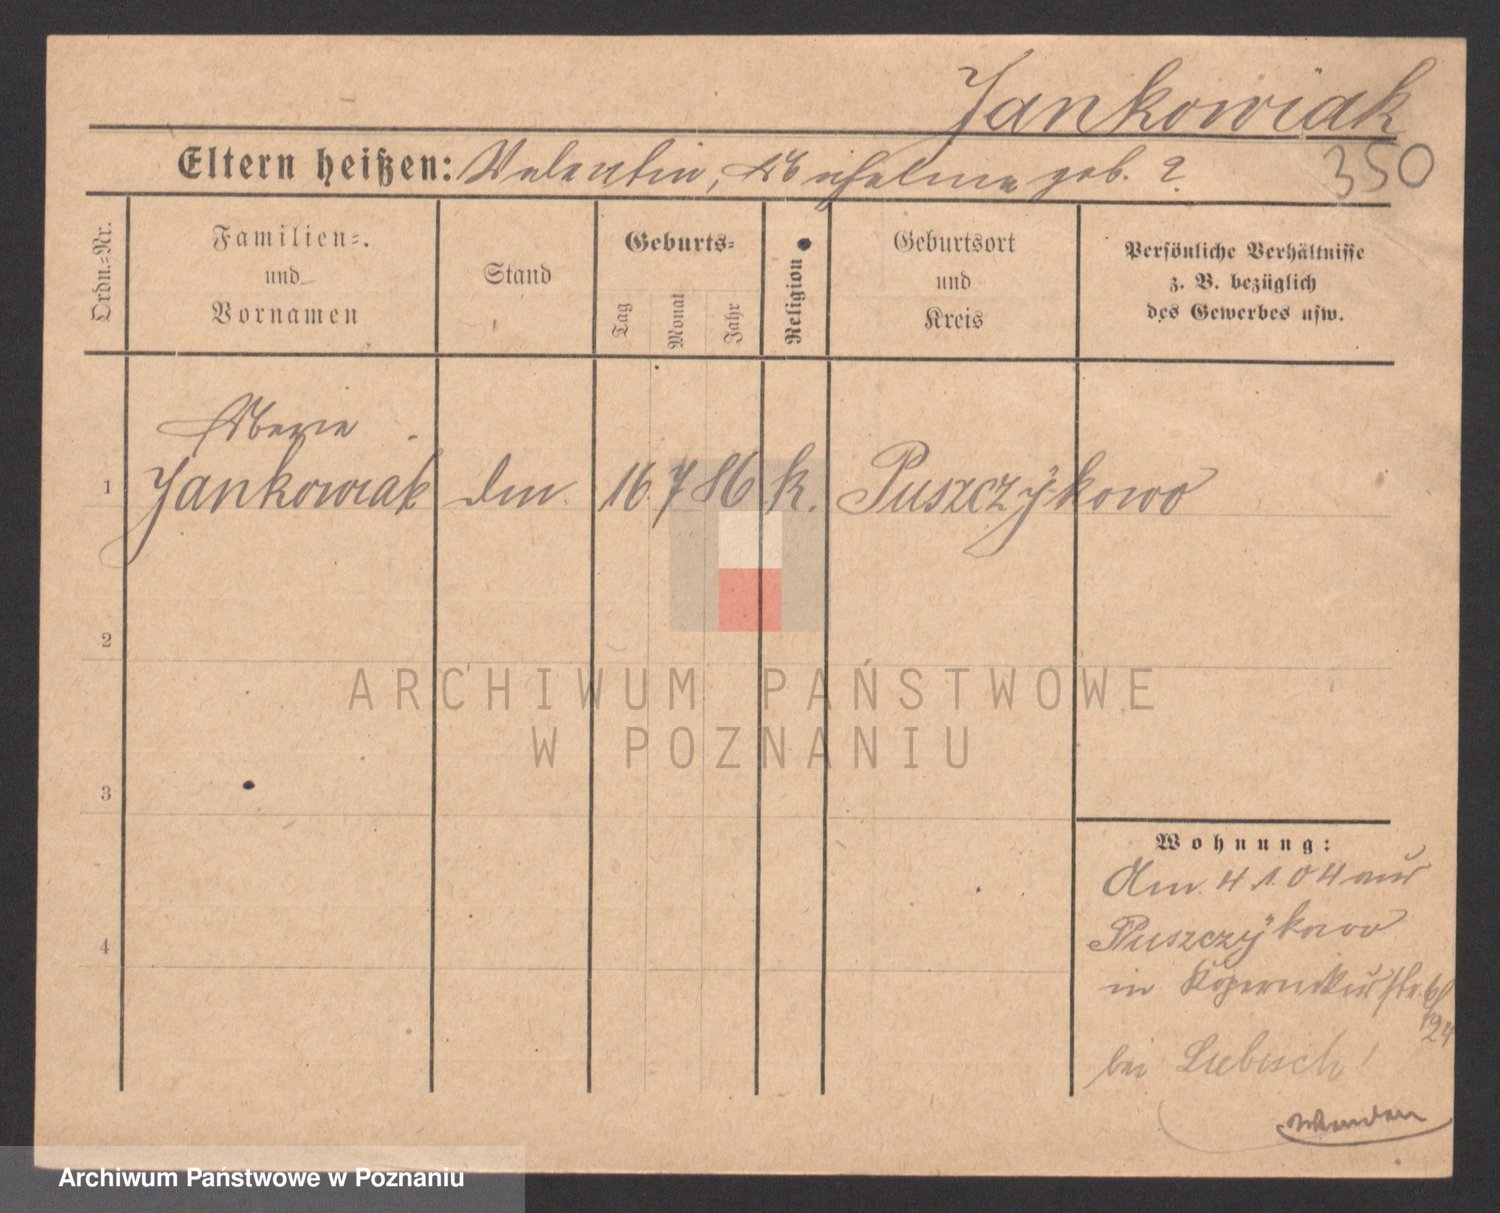 Jankowiak
Eltern heißen: Valentin, Michalina geb. ?
350
Ordn.=Nr.
Familien=.
und
Vornamen
Stand
Geburts=
Tag
Monat
Jahr
Religion
Geburtsort
und
Kreis
Persönliche Verhältnisse
z. B. bezüglich
des Gewerbes usw.
Marie
1 Jankowiak 16 7 86 k. Puszczykowo
2
ARCHIWUM PAŃSTWOWE
W POZNANIU
3
Wohnung:
Am 4 1 04 aus
Puszczykowo
4
in Kopernikusstr.
bei Liebisch
Wenden
Archiwum Państwowe w Poznaniu